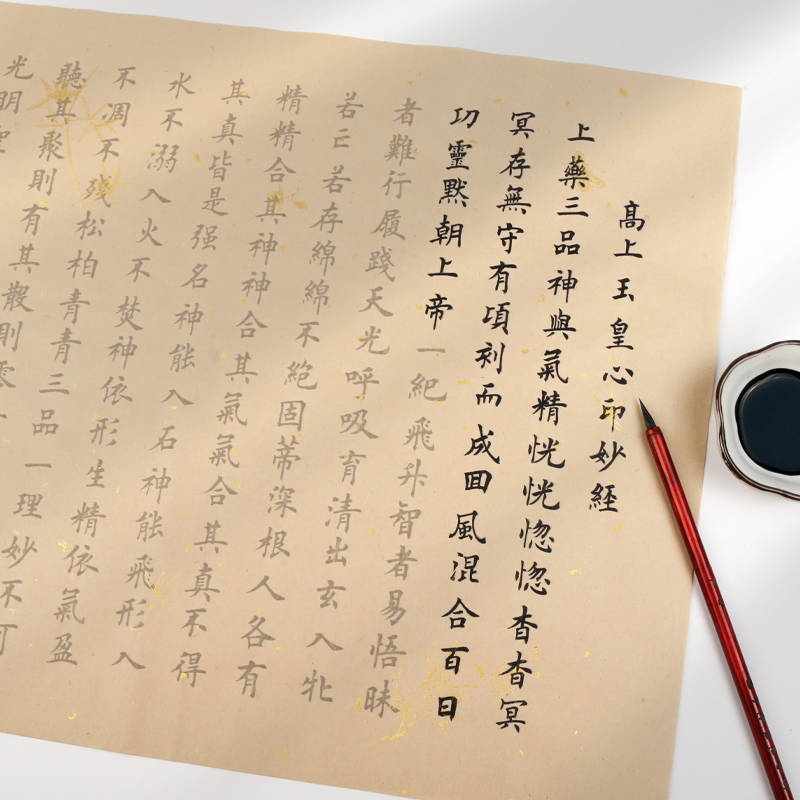 高上玉皇心印妙經
上藥三品神與氣精恍恍惚惚杳杳冥
冥存無守有頃刻而成回風混合百日
功靈默朝上帝一紀飛升智者易悟昧
者難行履踐天光呼吸育清出玄入牝
若亡若存綿綿不絕固蒂深根人各有
精精合其神神合其氣氣合其真不得
其真皆是强名神能入石神能飛形入
水不溺入火不焚神依形生精依氣盈
不凋不殘松柏青青三品一理妙不可
聽其聚則有其散則零
光明